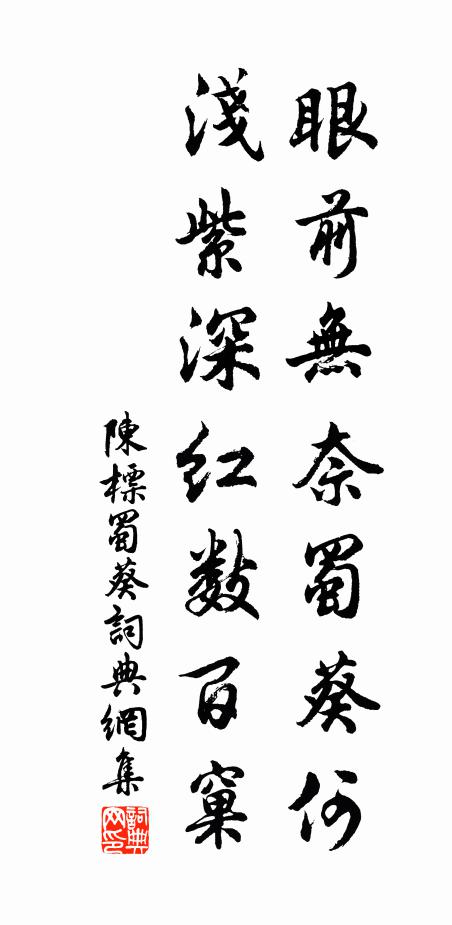 眼前無奈蜀葵何
淺紫深红数百窠
陳標蜀葵詞典網集
詞典网印